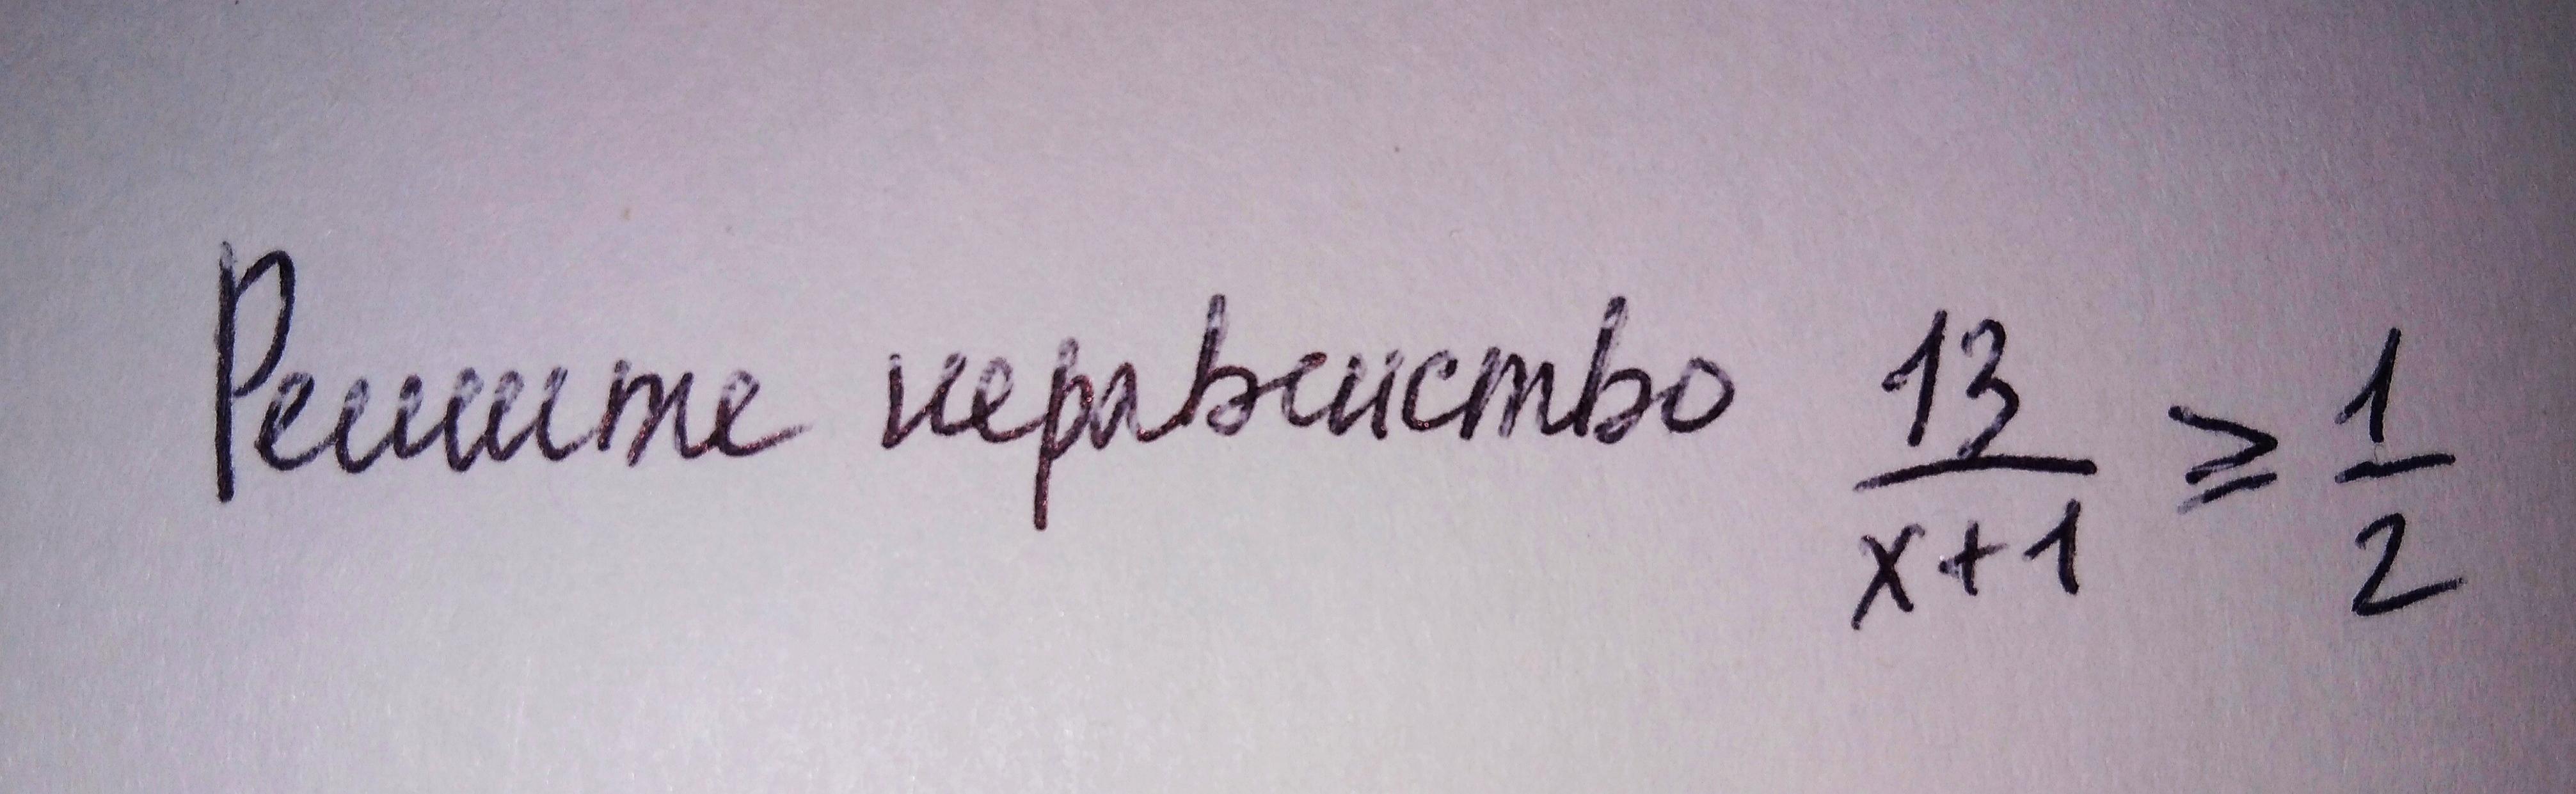 Решите неравенство 13/(x+1) ≥ 1/2